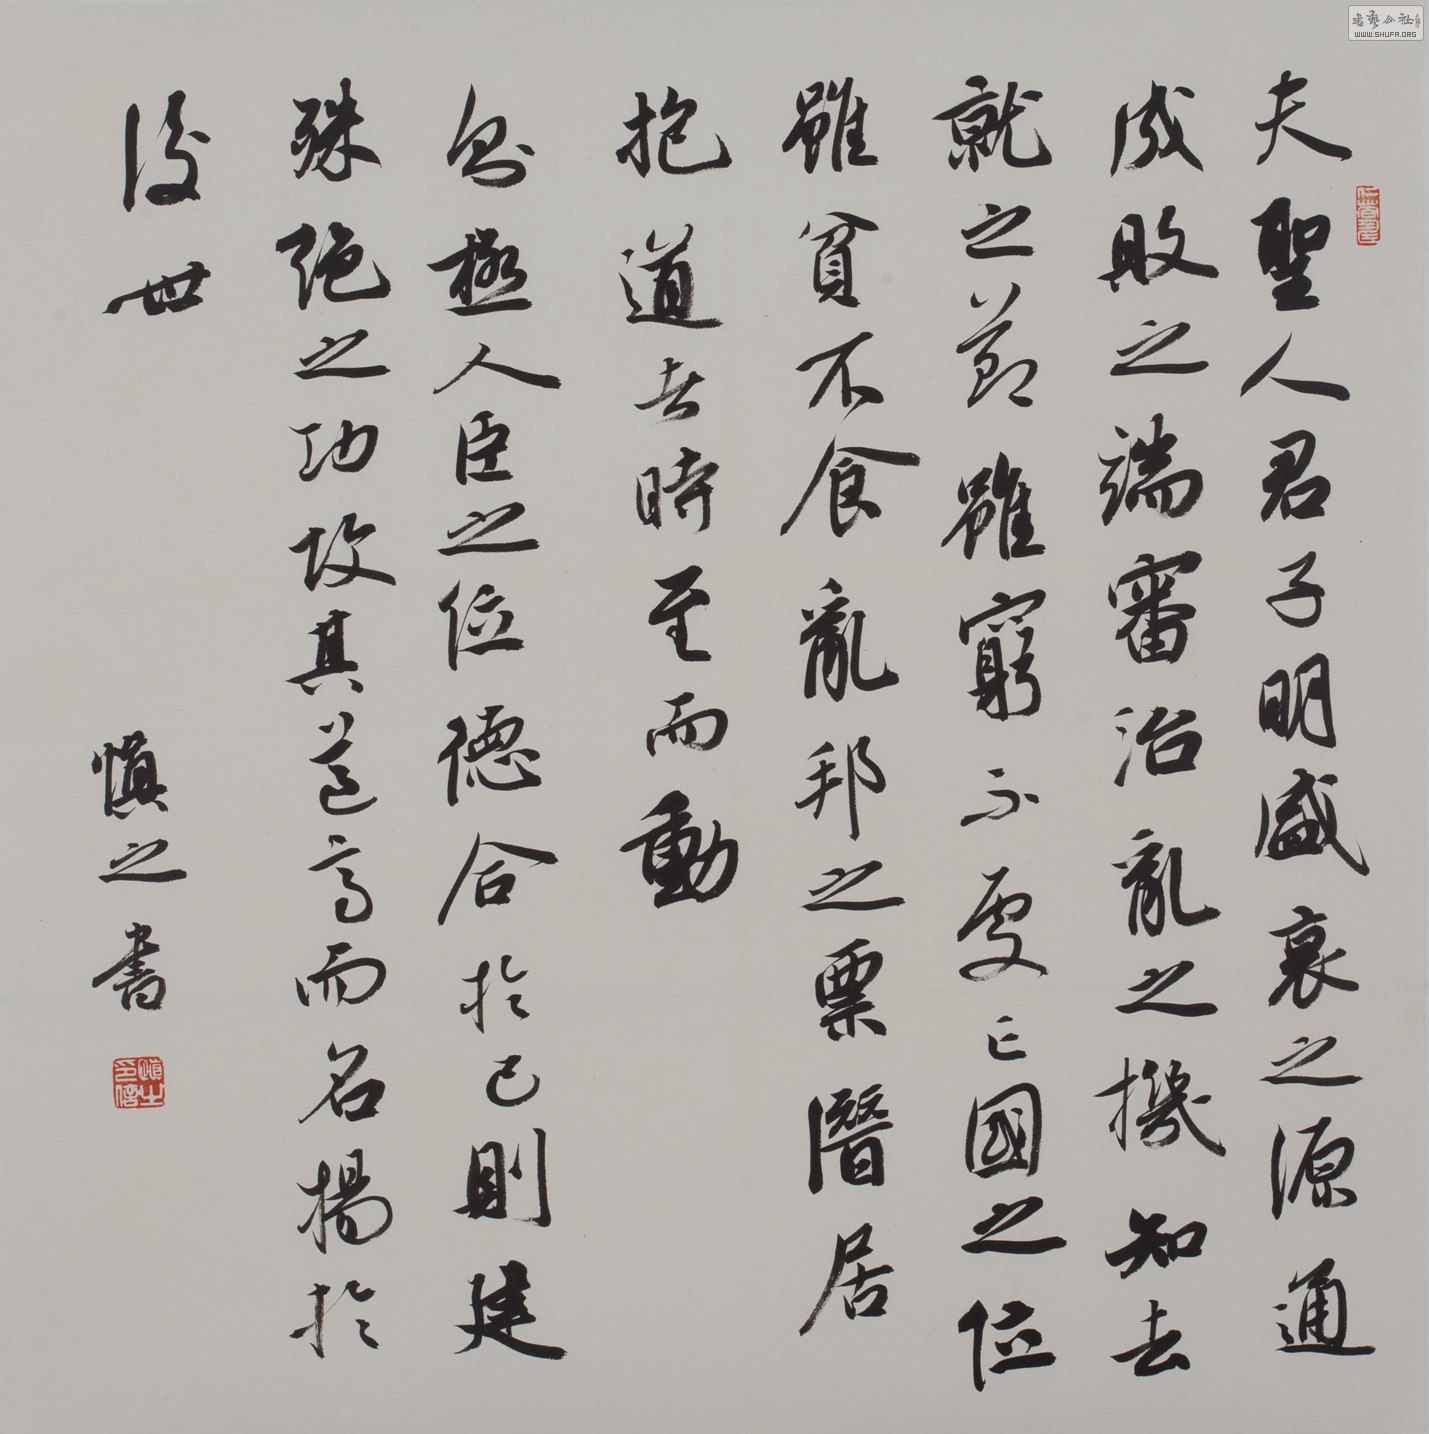 夫聖人君子明盛衰之源通
成敗之端審治亂之機知去
就之節雖窮不處亡國之位
雖貧不食亂邦之粟潛居
抱道者時至而動
則極人臣之位德合於己則建
殊絕之功故其道高而名揚於
後世
慎之書
慎之印信
書藝公社
WWW.SHUFA.ORG